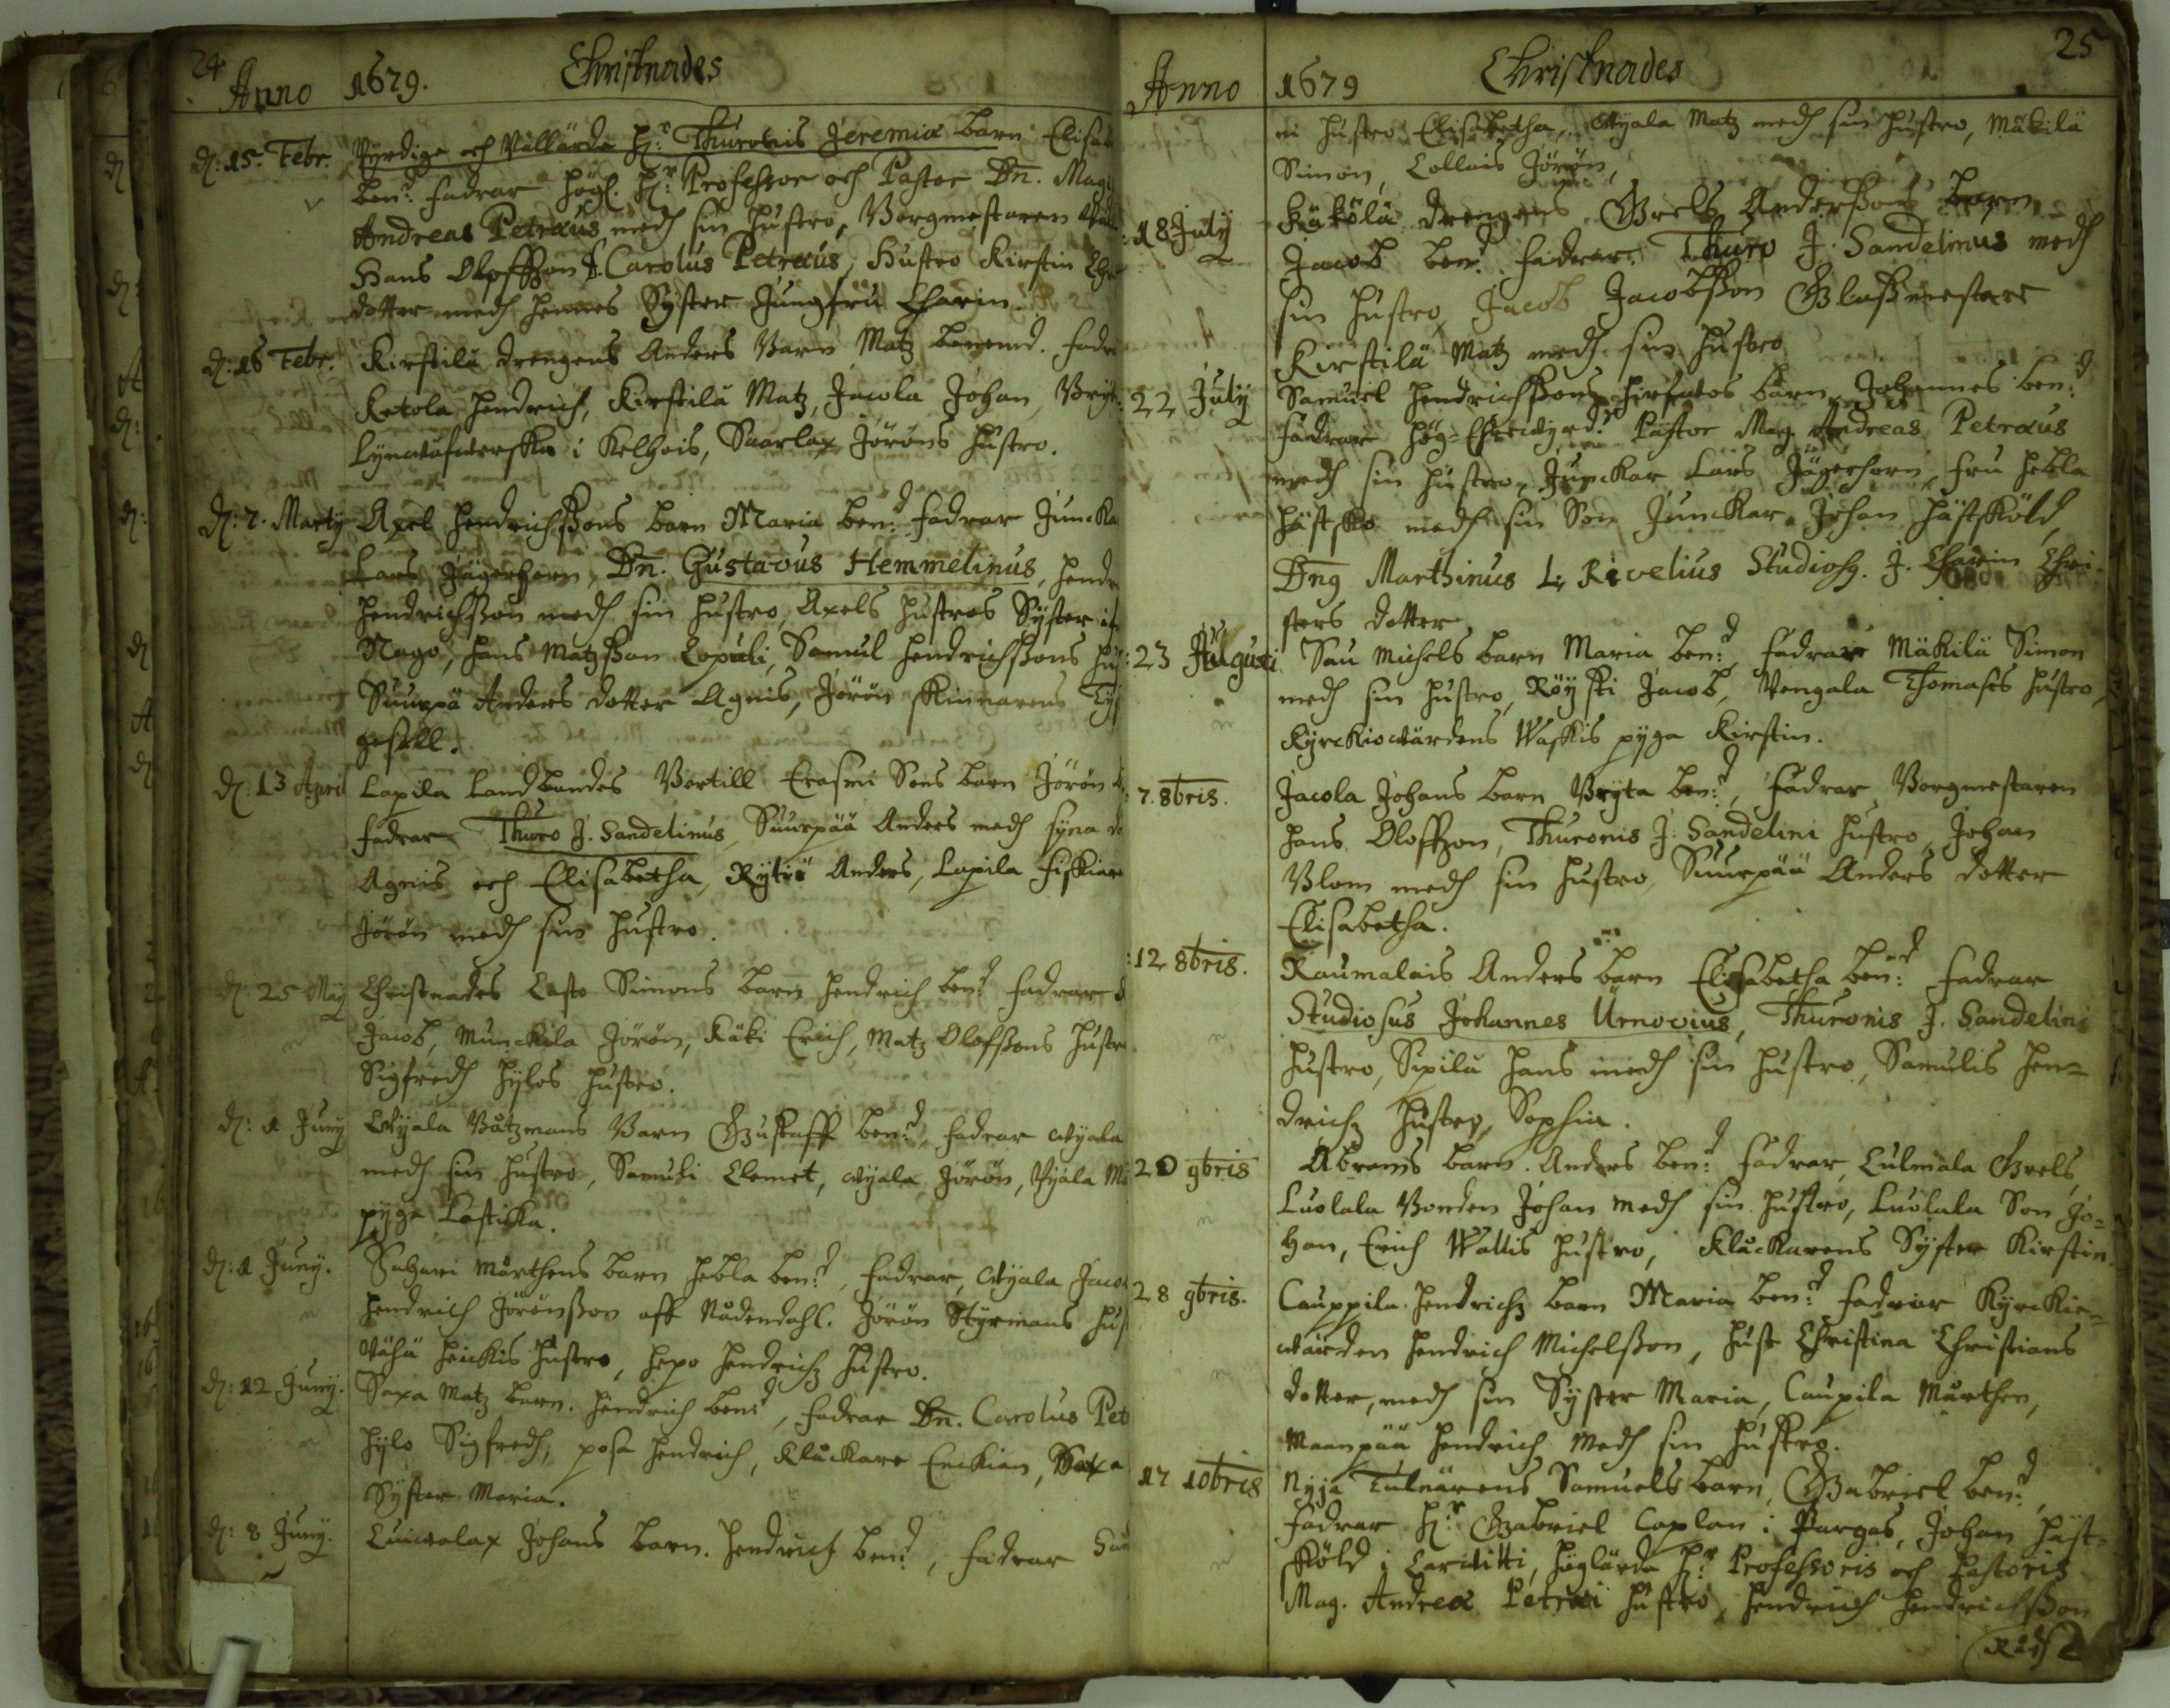 24
Anno 1679. Christnades
d: 15. Febr. Wyrdige och Wällärde H:r Thuronis Jeremiæ barn Elisa
ben:d fadrar Högl. H:r Professor och Pastor Dn. Mag
Andreas Petræus medh sin hustro, Borgmestaren
Hans Oloffsson D. Carolus Petræus, Hustro Kirstin Chr
dotter medh hennes Syster Jungfru Charin.
d: 16 Febr. Kirstilä drengens Anders Barn Matz benemd. fadr
Ketola Hendrich, Kirstilä Matz, Jacola Johan,
i Kelhois, Saarlax Jöröns hustro.
d: 7. Marty Axel Hendrichssons barn Maria ben:d fadrar Juncka
Lars Jägerhorn, Dn. Gustavus Hemmelinus, Hendr
Hendrichsson medh sin hustro, Axels hustros Syster
Nago, Hans Matzsson Lopuli, Samul Hendrichssons hu
Suurpä Anders dotter Agnis, Jörön skinnarens
gesell.
d: 13 April Lapila Landbondes Bertill Erasmi Sons barn Jörön
fadrar Thuro J. Sandelinus, Suurpää Anders medh syna do
Agnis och Elisabetha, Rytiö Anders, Lapila fiskiare
Jörön medh sin hustro.
d: 25 May Christnades Casto Simons barn Hendrich ben:d fadrar
Jacob, Munckila Jörön, Käki Erich, Matz Olofssons hustr
Sigfredh Hylos hustro.
d: 1 Juny Wyala Båtzmans Barn Gustaff ben:d, fadrar Wyala
medh sin hustro, Samuli Clemet, Wyala Jörön, Wyala Ma
pyga
d: 1 Juny. Sahari Mårthens barn Hebla ben:d, fadrar, Wyala Jaco
Hendrich Jöronsson aff Nådendahl. Jörön Styrmans hus
Vähä Heickis hustro, Hepo Hendrichz hustro.
d: 12 Juny. Saxa Matz barn. Hendrich ben:d, fadrar Dn. Carolus Pet
Hylo Sigfredh, posa Hendrich, Klåckare Enckian, Saxa
Syster Maria.
d: 8 Juny. Luicalax Johans barn. Hendrich ben:d, fadrar
25
Anno 1679 Christnades
ni hustro Elisabetha, Wyala Matz medh sin hustro, Mäkilä
Simon, Collais Jörön,
18 July Käkölä drengens Grels Anderssons barn
Jacob ben:d fadrar. Thuro J. Sandelinus medh
sin hustro, Jacob Jacobsson Glasmestare
Kirstilä Matz medh sin hustro
22 July Samuel Hendrichssons barn, Johannes ben:d
fadrar Hög-Ehrewyrd: Pastor Mag. Andreas Petræus
medh sin hustro, Junckar Lars Jägerhorn, fru Hebla
Hästsko medh sin Son Junckar Johan Hästsköld,
Dng Marthinus L. Rivelius Studiosg. J. Charin Chri-
sters dotter.
23 Augusti Sau Michels barn Maria ben:d, fadrar Mäkilä Simon
medh sin hustro, Röyski Jacob, Vengala Thomases hustro,
Kyrckiowärdens Waskis pyga Kirstin.
7. 8bris. Jacola Johans barn Bryta ben:d, fadrar Borgmestaren
Hans Oloffson, Thuronis J. Sandelini hustro, Johan
Blom medh sin hustro, Suurpää Anders dotter
Elisabetha.
12 8bris. Raumalais Anders barn Elisabetha ben:d fadrar
Studiosus Johannes Urnovius, Thuronis J. Sandelini
hustro, Sipilä Hans medh sin hustro, Samulis Hen=
drichz hustro, Sophia.
20 9bris Abrams barn. Anders ben:d fadrar, Culmala Grels,
Luolala Bonden Johan medh sin hustro, Luolala Son Jo=
han, Erich Wattis hustro, Klåckarens Syster Kirstin.
28 9bris. Cauppila Hendrichz barn Maria ben:d fadrar Kyrckie=
wärden Hendrich Michelsson, hust Christina Christians
dotter, medh sin Syster Maria, Caupila Mårthen,
Maanpää Hendrich Medh sin hustro.
17 10bris Nyja Tulnärens Samuels barn, Gabriel ben:d,
fadrar H:r Gabriel Caplan i Pargas, Johan Häst=
sköld i Carwitti, Höglärde H:r Professoris och Pastoris
Mag. Andreæ Petræi hustro, Hendrich Hendrichsson